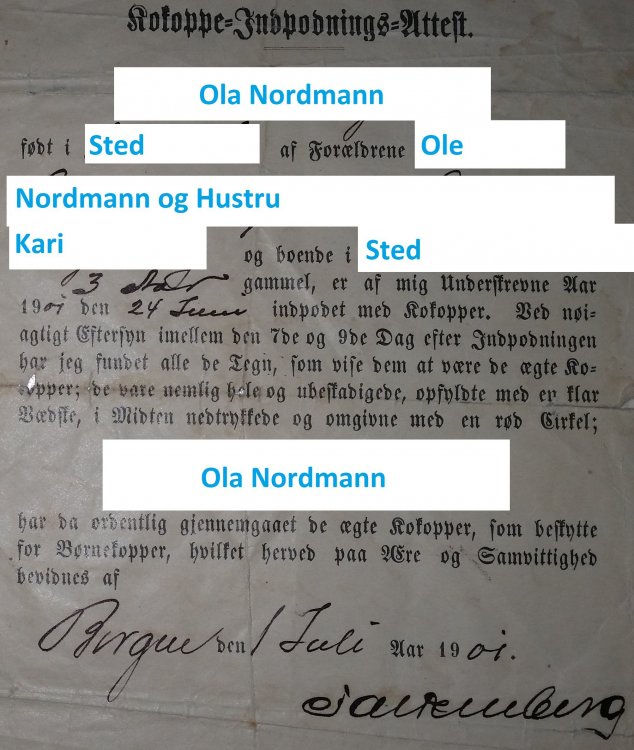 Kokoppe-Indpodnings-Attest.
Ola Nordmann
født i Sted af Forældrene Ole
Nordmann og Hustru
Kari og boende i Sted
3 Aar gammel, er af mig Underskrevne Aar
1901 den 24 Juni indpodet med Kokopper. Ved nøi-
agtigt Eftersyn imellem den 7de og 9de Dag efter Indpodningen
har jeg fundet alle de Tegn, som vise dem at være de ægte Ko-
kopper; de vare nemlig hele og ubeskadigede, opfyldte med en klar
Vædske, i Midten nedtrykkede og omgivne med en rød Cirkel;
Ola Nordmann
har da ordentlig gjennemgaaet de ægte Kokopper, som beskytte
for Børnekopper, hvilket herved paa Ære og Samvittighed
bevidnes af
den 1 Juli Aar 1901.